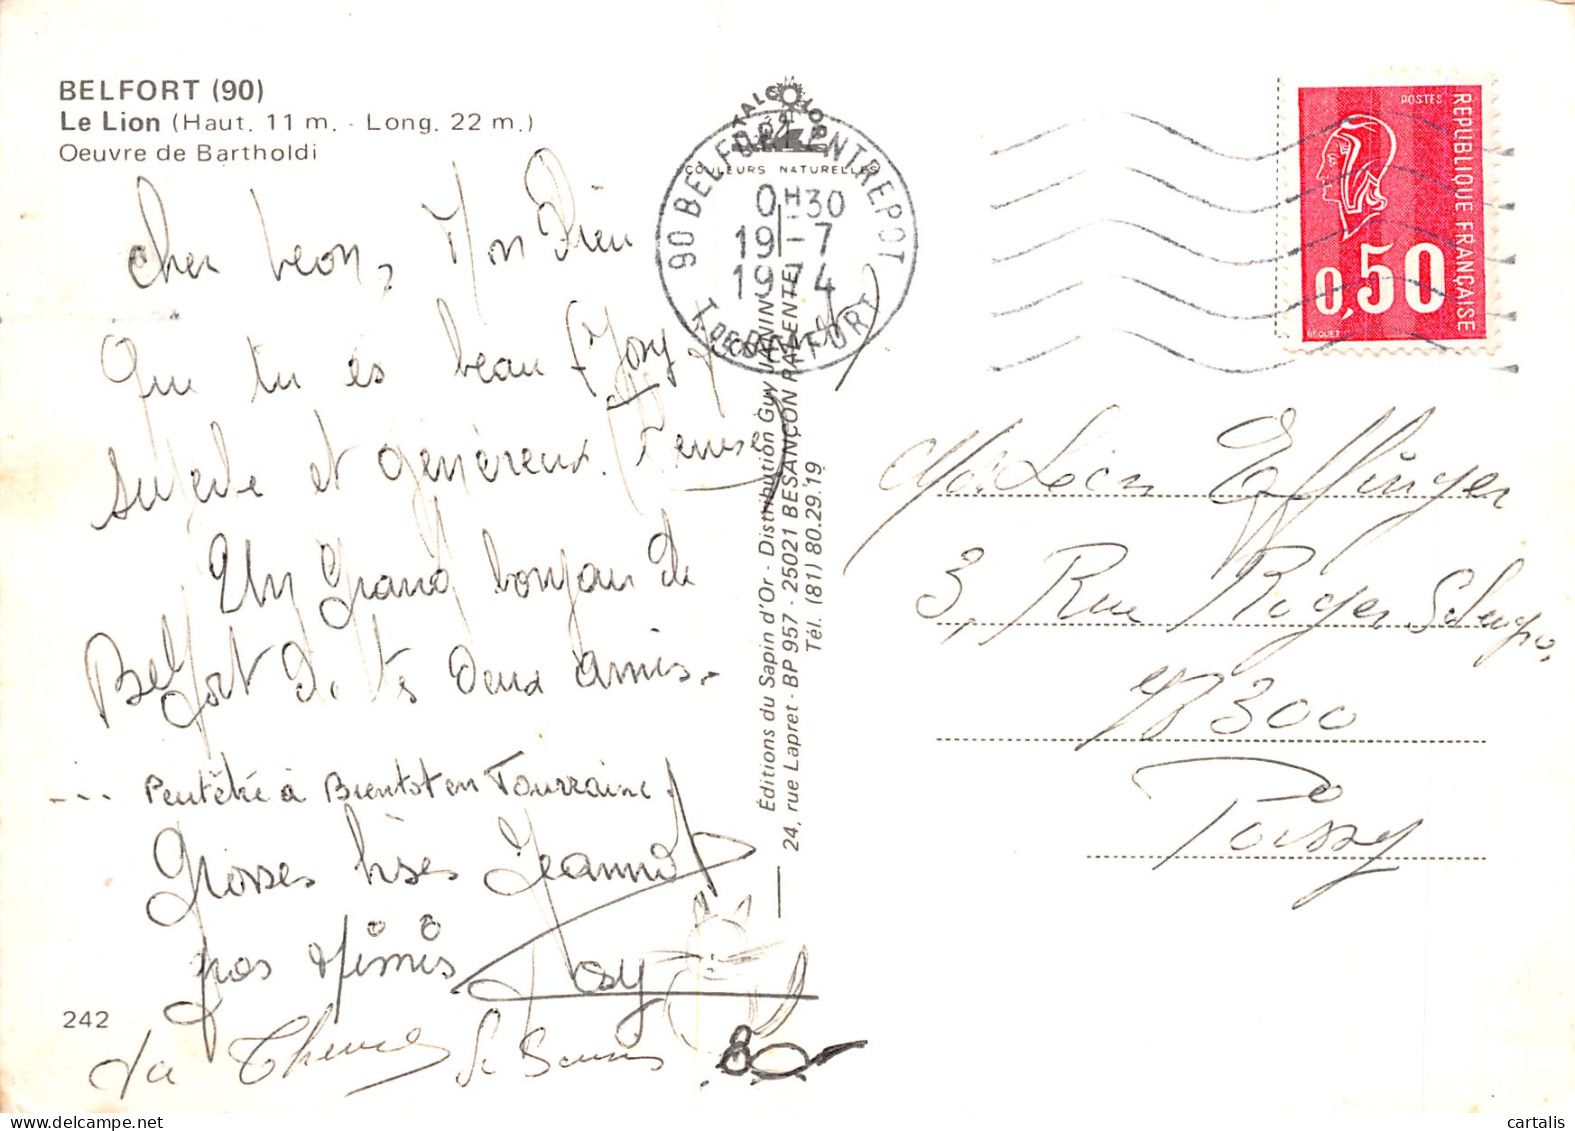 BELFORT (90)
Le Lion (Haut. 11 m. - Long. 22 m.)
Oeuvre de Bartholdi
COULEURS NATURELLES
90 BELFORT ENTREPOT
0H30
19-7
1974
T. DE BELFORT
POSTES
REPUBLIQUE FRANÇAISE
0,50
BEQUET
Cher Léon, Mon Dieu
Que tu es beau (Josy
et généreux.
Un grand bonjour de
Belfort de tes deux amis.
--- Peutêtre à Bientot en Tourraine
Grosses bises Jeannot
gros Mimis Josy
242
Éditions du Sapin d'Or - Distribution Guy JANIN
24, rue Lapret - BP 957 - 25021 BESANÇON RP ENTE
Tél. (81) 80.29.19
Léon Effinger
3, Rue Roger
78300
Poissy
cartalis